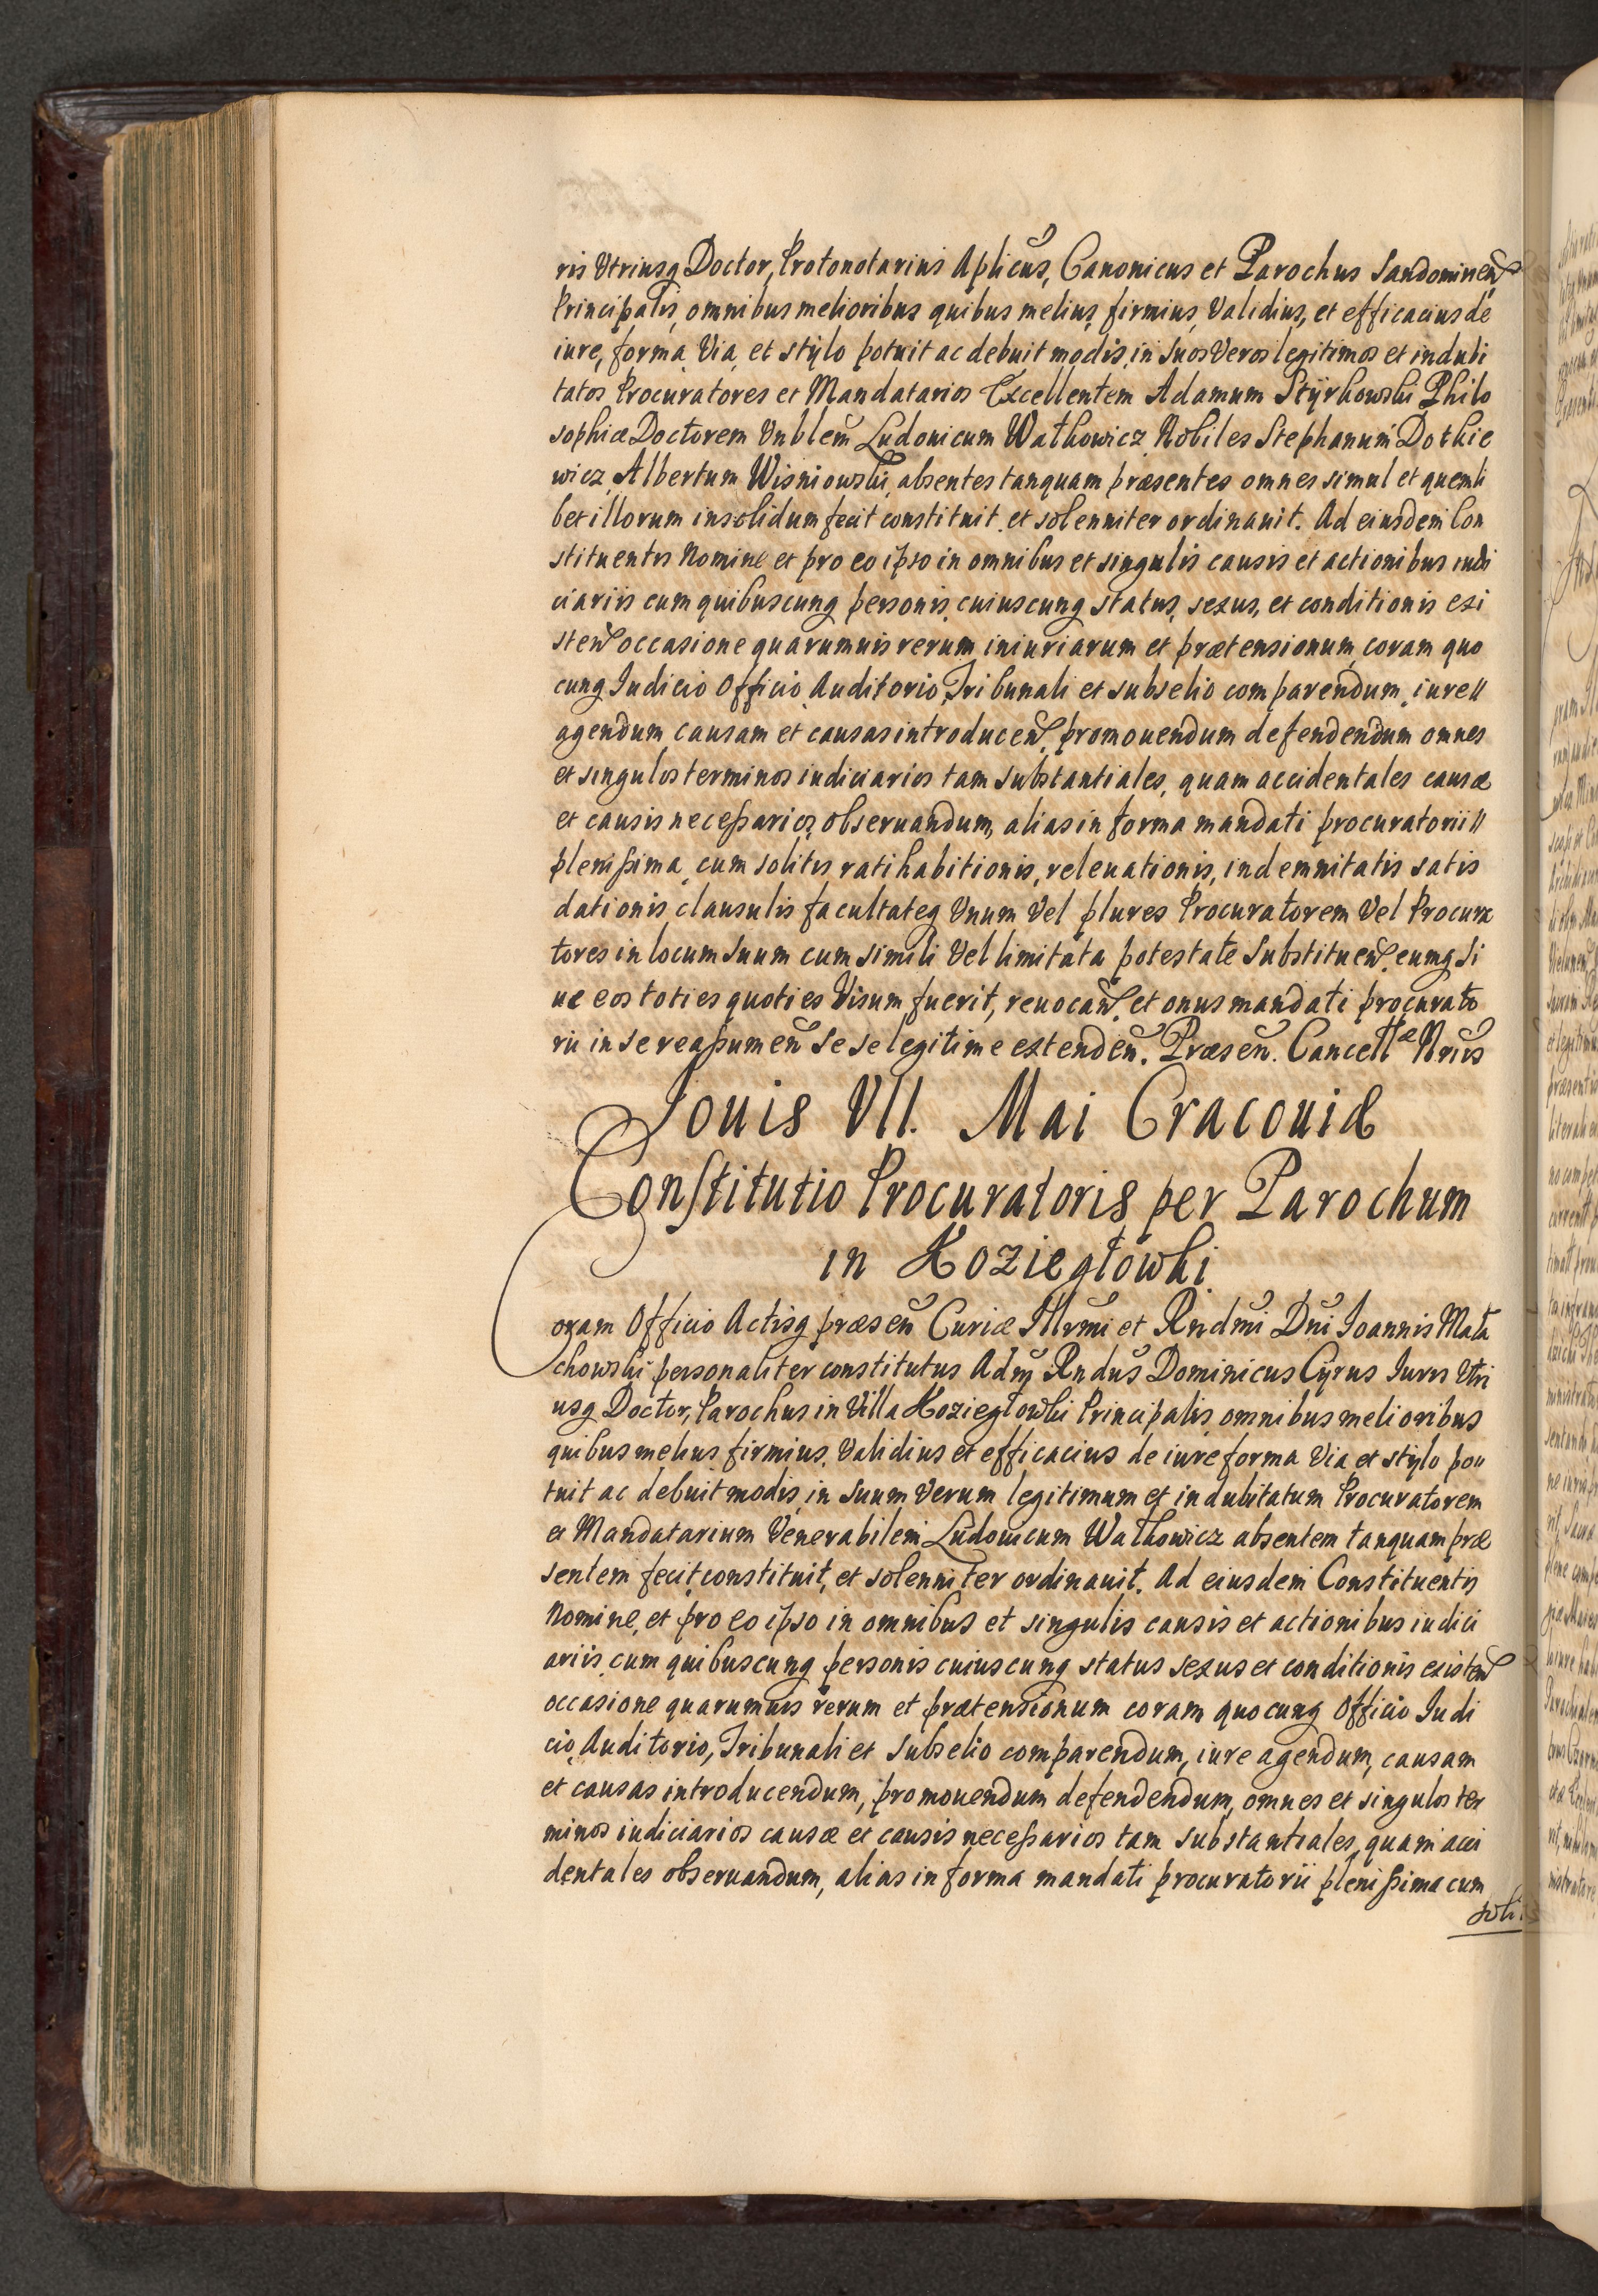 ris Vtriusq Doctor, Protonotarius Aplicus, Canonicus et Parochus Sandomirien
Principalis, omnibus melioribus quibus melius, firmius, Validius, et efficacius de
iure, forma, Via, et stÿlo potuit ac debuit modis, in Suos Veros legitimos et indubi
tatos Procuratores et Mandatarios Excellentem Adamum Stÿrkowski Philo
sophiæ Doctorem Vnblem Ludouicum Wathowicz, Nobiles Stephanum Dothie
wicz, Albertum Wisniowski, absentes tanquam præsentes omnes simul et quemli
bet illorum insolidum fecit constituit, et solenniter ordinauit. Ad eiusdem Con
stituentis Nomine et pro eo ipso in omnibus et singulis causis et actionibus iudi
ciariis cum quibuscunq personis, cuiuscunq status, sexus, et conditionis exi
sten occasione quarumuis rerum iniuriarum et prætensionum, coram quo
cunq Iudicio Officio, Auditorio, Tribunali et subselio comparendum, iure//
agendum causam et causas introducen, promouendum defendendum omnes
et singulos terminos iudiciarios tam substantiales, quam accidentales causæ
et causis necessarios, obseruandum, alias in forma mandati procuratorii//
plenissima, cum solitis ratihabitionis, releuationis, indemnitatis satis
dationis, clausulis facultateq Vnum Vel plures Procuratorem Vel Procura
tores in locum Suum cum simili Vel limitata potestate Substituen, eumq Si
ue eos toties quoties Visum fuerit, reuocan, et onus mandati procurato
rii in se reassumen Se se legitime extenden. Præsen. Cancellæ Nrius
Iouis VII. Mai Cracouiæ
Constitutio Procuratoris per Parochum
in Koziegłowki
Coram Officio Actisq præsen Curiæ Illrmi et Rndmi Dni Ioannis Mała
chowski personaliter constitutus Adm Rndus Dominicus Cÿrus Iuris Vtri
usq Doctor, Parochus in Villa Koziegłowki Principalis, omnibus melioribus
quibus melius firmius, Validius et efficacius de iure forma Via et stÿlo po
tuit ac debuit modis, in Suum Verum legitimum et indubitatum Procuratorem
et Mandatarium Venerabilem Ludouicum Wathowicz absentem tanquam præ
sentem fecit, constituit, et solenniter ordinauit. Ad eiusdem Constituentis
Nomine, et pro eo ipso in omnibus et singulis causis et actionibus iudici
ariis, cum quibuscunq personis cuiuscunq status sexus et conditionis existen
occasione quarumuis rerum et prætensionum coram quocunq Officio Iudi
cio, Auditorio, Tribunali et Subselio comparendum, iure agendum, causam
et causas introducendum, promouendum defendendum, omnes et singulos ter
minos iudiciarios causæ et causis necessarios tam substantiales, quam acci
dentales obseruandum, alias in forma mandati procuratorii plenissima cum
solitis